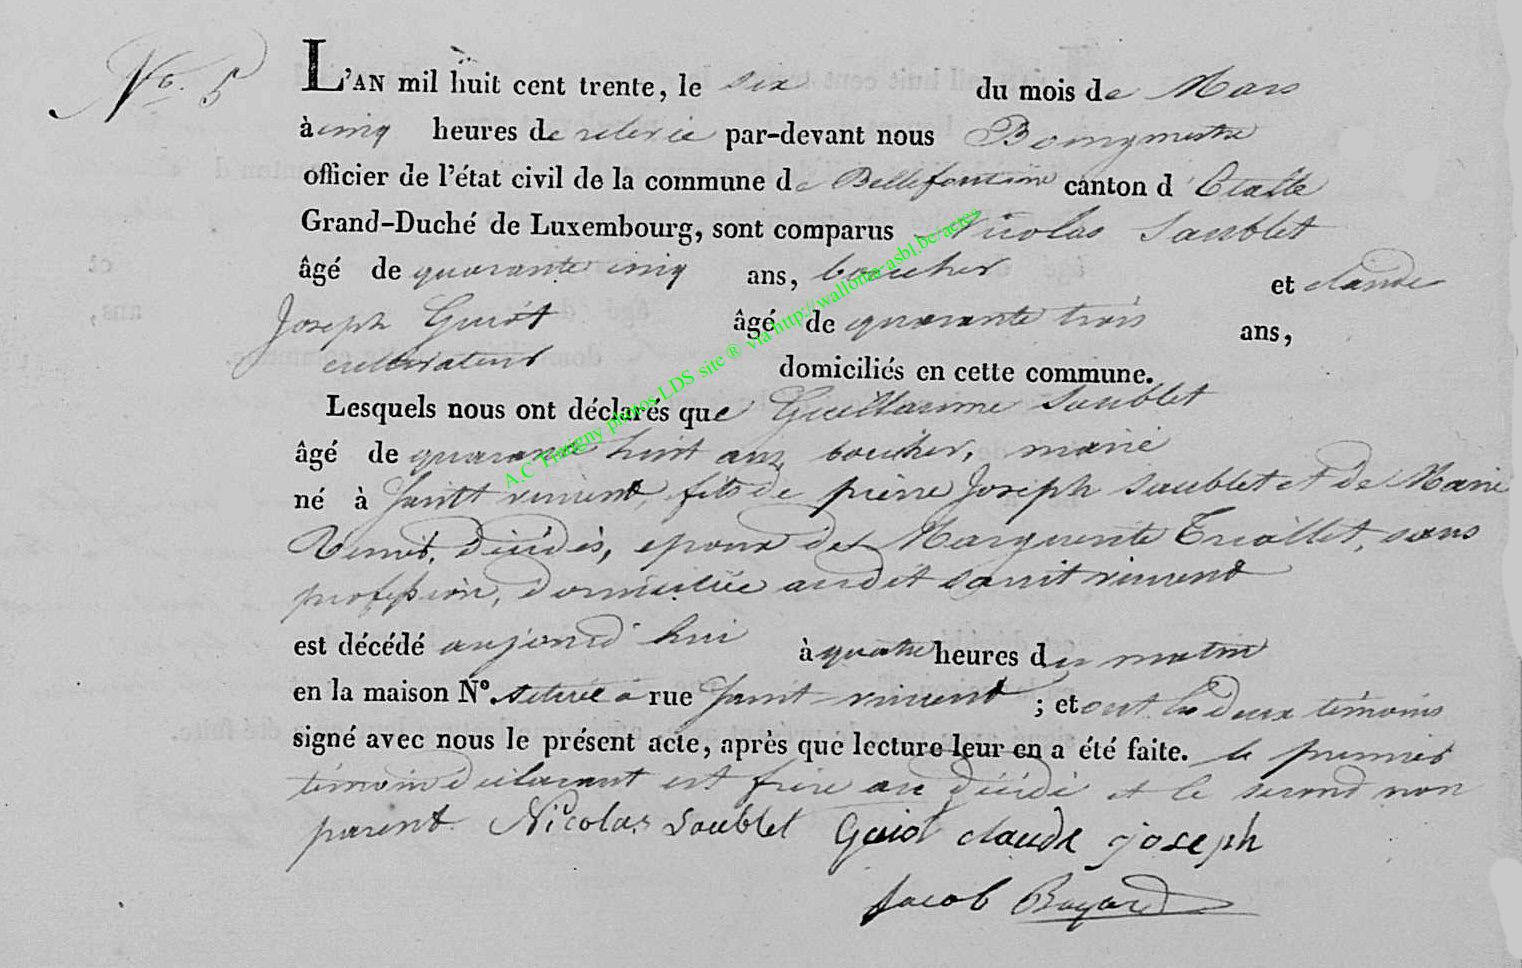 No. 5
L'AN mil huit cent trente, le six du mois de Mars
à cinq heures de relevée par-devant nous Bourgmestre
officier de l'état civil de la commune de Bellefontaine canton d'Etalle
Grand-Duché de Luxembourg, sont comparus Nicolas Saublet
âgé de quarante cinq ans, boucher et Claude
Joseph Guiot âgé de quarante trois ans,
cultivateur domiciliés en cette commune.
Lesquels nous ont déclarés que Guillaume Saublet
âgé de quarante huit ans, boucher, marié
né à Saint vincent, fils de pierre Joseph Saublet et de Marie
décédés, epoux de Marguerite Triollet, sans
profession, domiciliée audit saint vincent
est décédé aujourd'hui à quatre heures du matin
en la maison No. située à rue Saint vincent ; et ont les deux témoins
signé avec nous le présent acte, après que lecture leur en a été faite. le premier
témoin déclarant est frère au décédé et le second non
parent. Nicolas Soublet Guiot claude joseph
Jacob Bayard
A.C Tintigny photos LDS site ® via http://wallonia-asbl.be/actes